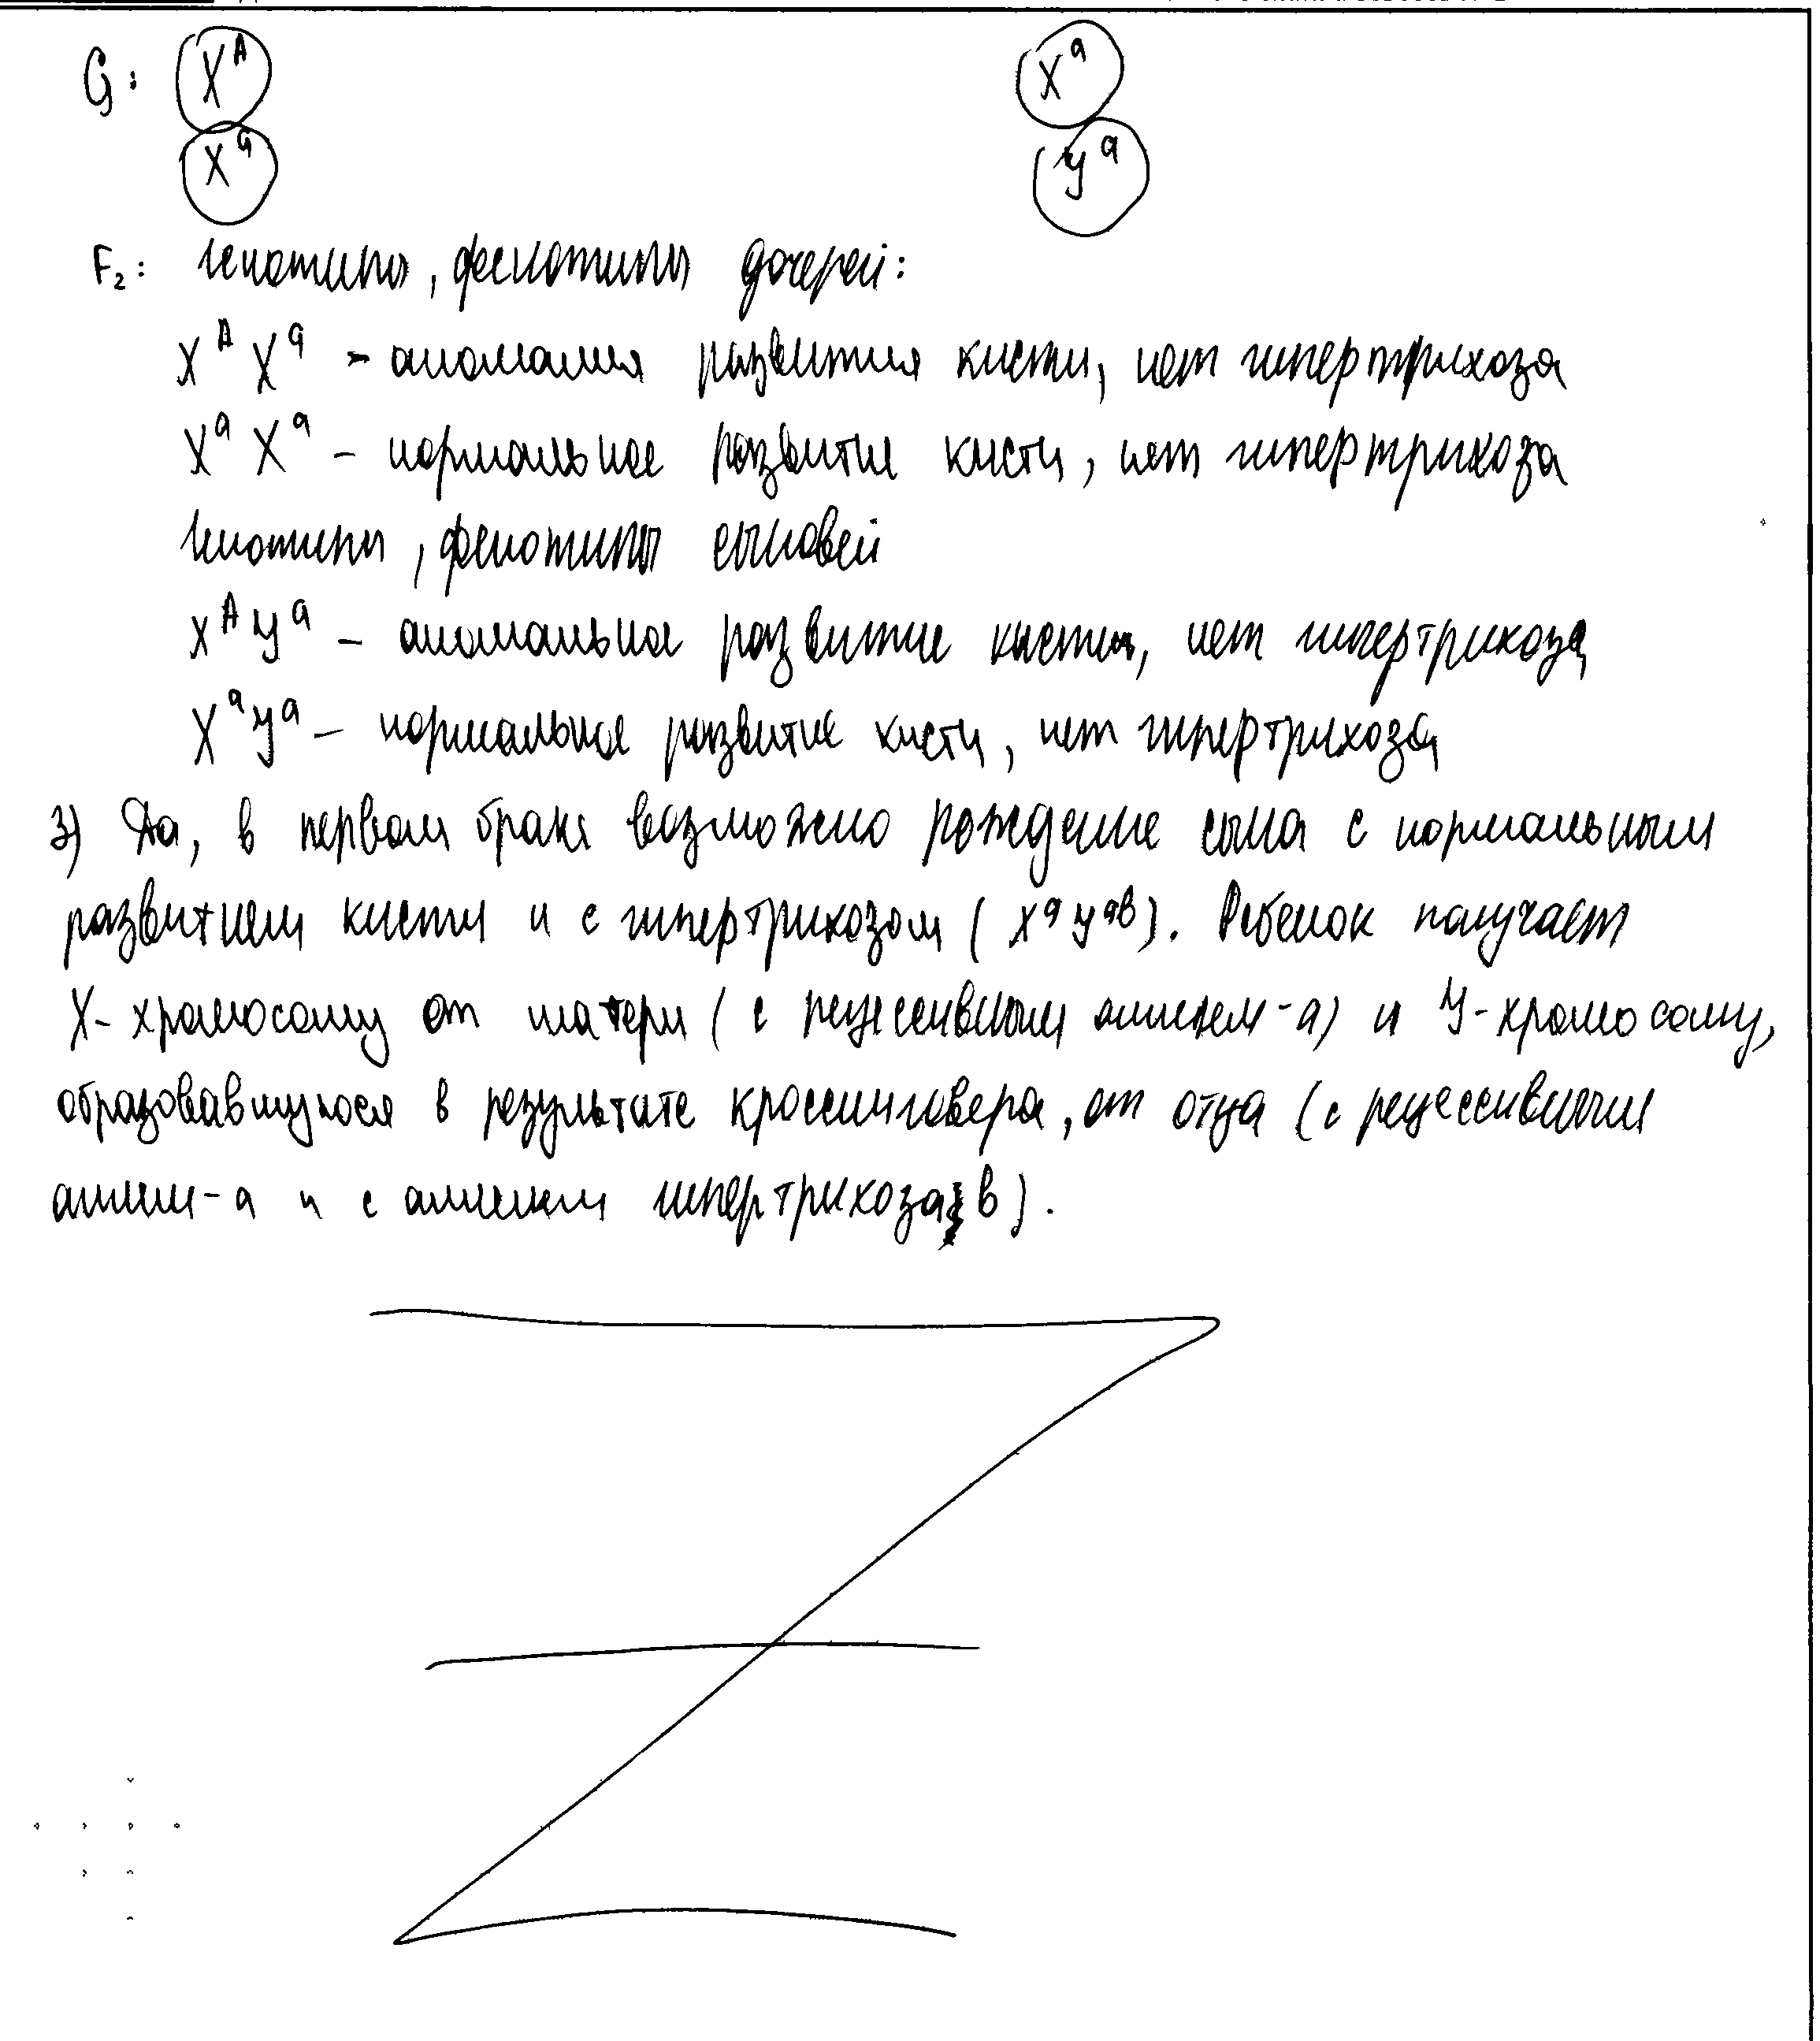 G: X^A X^a
X^a У^a
F₂: генотипы, фенотипы дочерей:
X^A X^a – аномалия развития кисти, нет гипертрихоза
X^a X^a – нормальное развитие кисти, нет гипертрихоза
генотипы, фенотипы сыновей
X^A У^a – аномальное развитие кисти, нет гипертрихоза
X^a У^a – нормальное развитие кисти, нет гипертрихоза
3) Да, в первом браке возможно рождение сына с нормальным
развитием кисти и с гипертрихозом (X^a У^aв). Ребенок получает
X-хромосому от матери (с рецессивным аллелем-а) и У-хромосому,
образовавшуюся в результате кроссинговера, от отца (с рецессивным
аллели-а и с аллелем гипертрихоза в).